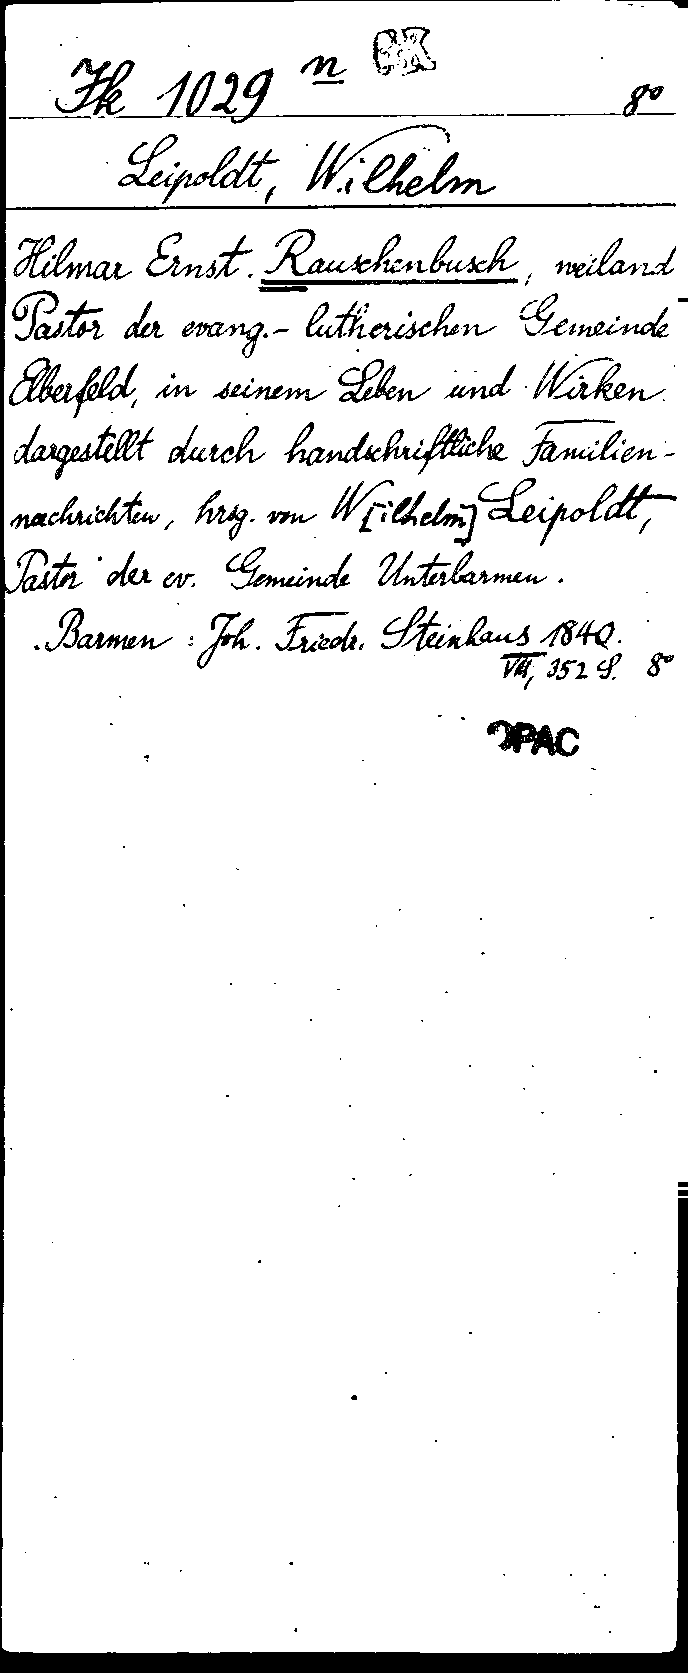 Fk 1029 n 8°
Leipoldt, Wilhelm
Hilmar Ernst Rauschenbusch, weiland
Pastor der evang.-lutherischen Gemeinde
Elberfeld, in seinem Leben und Wirken
dargestellt durch handschriftliche Familien-
nachrichten, hrsg. von W[ilhelm] Leipoldt,
Pastor der ev. Gemeinde Unterbarmen.
Barmen: Joh. Friedr. Steinhaus 1840.
VIII, 352 S. 8°
OPAC